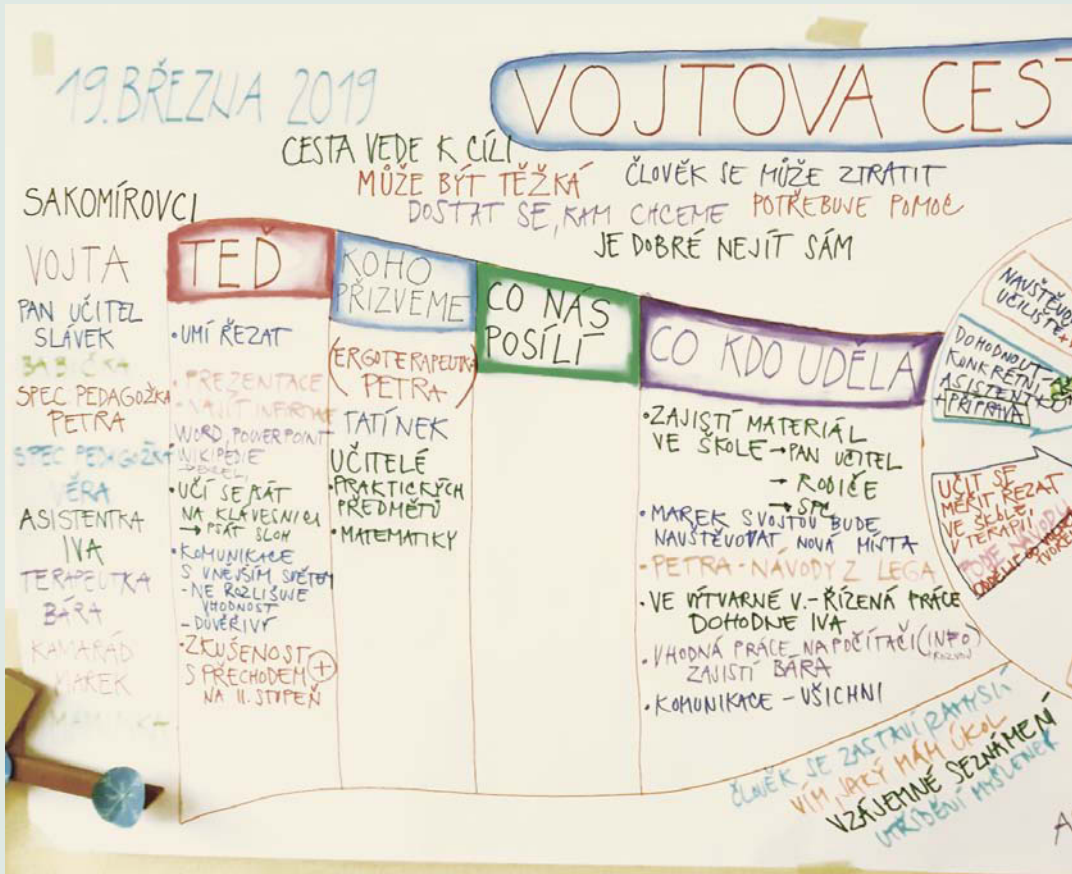 19. BŘEZNA 2019
VOJTOVA CEST
CESTA VEDE K CÍLI
MŮŽE BÝT TĚŽKÁ
ČLOVĚK SE MŮŽE ZTRATIT
DOSTAT SE, KAM CHCEME
POTŘEBUJE POMOC
JE DOBRÉ NEJÍT SÁM
SAKOMÍROVCI
VOJTA
PAN UČITEL
SLÁVEK
BABIČKA
SPEC PEDAGOŽKA
PETRA
SPEC PEDAGOŽKA
VĚRA
ASISTENTKA
IVA
TERAPEUTKA
BÁRA
KAMARÁD
MAREK
MAMINKA
TEĎ
• UMÍ ŘEZAT
• PREZENTACE
- NAJÍT INFORMACE
WORD, POWERPOINT
WIKIPEDIE
→ EXCEL,
• UČÍ SE PSÁT
NA KLÁVESNICI
→ PSÁT SLOH
• KOMUNIKACE
S VNĚJŠÍM SVĚTEM
- NE ROZLIŠUJE
VHODNOST
- DŮVĚŘIVÝ
• ZKUŠENOST +
S PŘECHODEM
NA II. STUPEŇ
KOHO
PŘIZVEME
(ERGOTERAPEUTKA
PETRA)
TATÍNEK
UČITELÉ
• PRAKTICKÝCH
PŘEDMĚTŮ
• MATEMATIKY
CO NÁS
POSÍLÍ
CO KDO UDĚLÁ
• ZAJISTÍ MATERIÁL
VE ŠKOLE → PAN UČITEL
→ RODIČE
→ SPC
• MAREK S VOJTOU BUDE
NAVŠTĚVOVAT NOVÁ MÍSTA
- PETRA - NÁVODY Z LEGA
• VE VÝTVARNÉ V. - ŘÍZENÁ PRÁCE
DOHODNE IVA
• VHODNÁ PRÁCE NA POČÍTAČI (INFO)
ZAJISTÍ BÁRA
• KOMUNIKACE - VŠICHNI
UČILIŠTĚ +
DOHODNOUT
KONKRÉTNÍ
ASISTENTKU
+ PŘÍPRAVA
UČIT SE
MĚŘIT ŘEZAT
VE ŠKOLE,
V TERAPII,
ČLOVĚK SE ZASTAVÍ ZAMYSLÍ
VÍM JAKÝ MÁM ÚKOL
VZÁJEMNÉ SEZNÁMENÍ
UTŘÍDĚNÍ MYŠLENEK
A